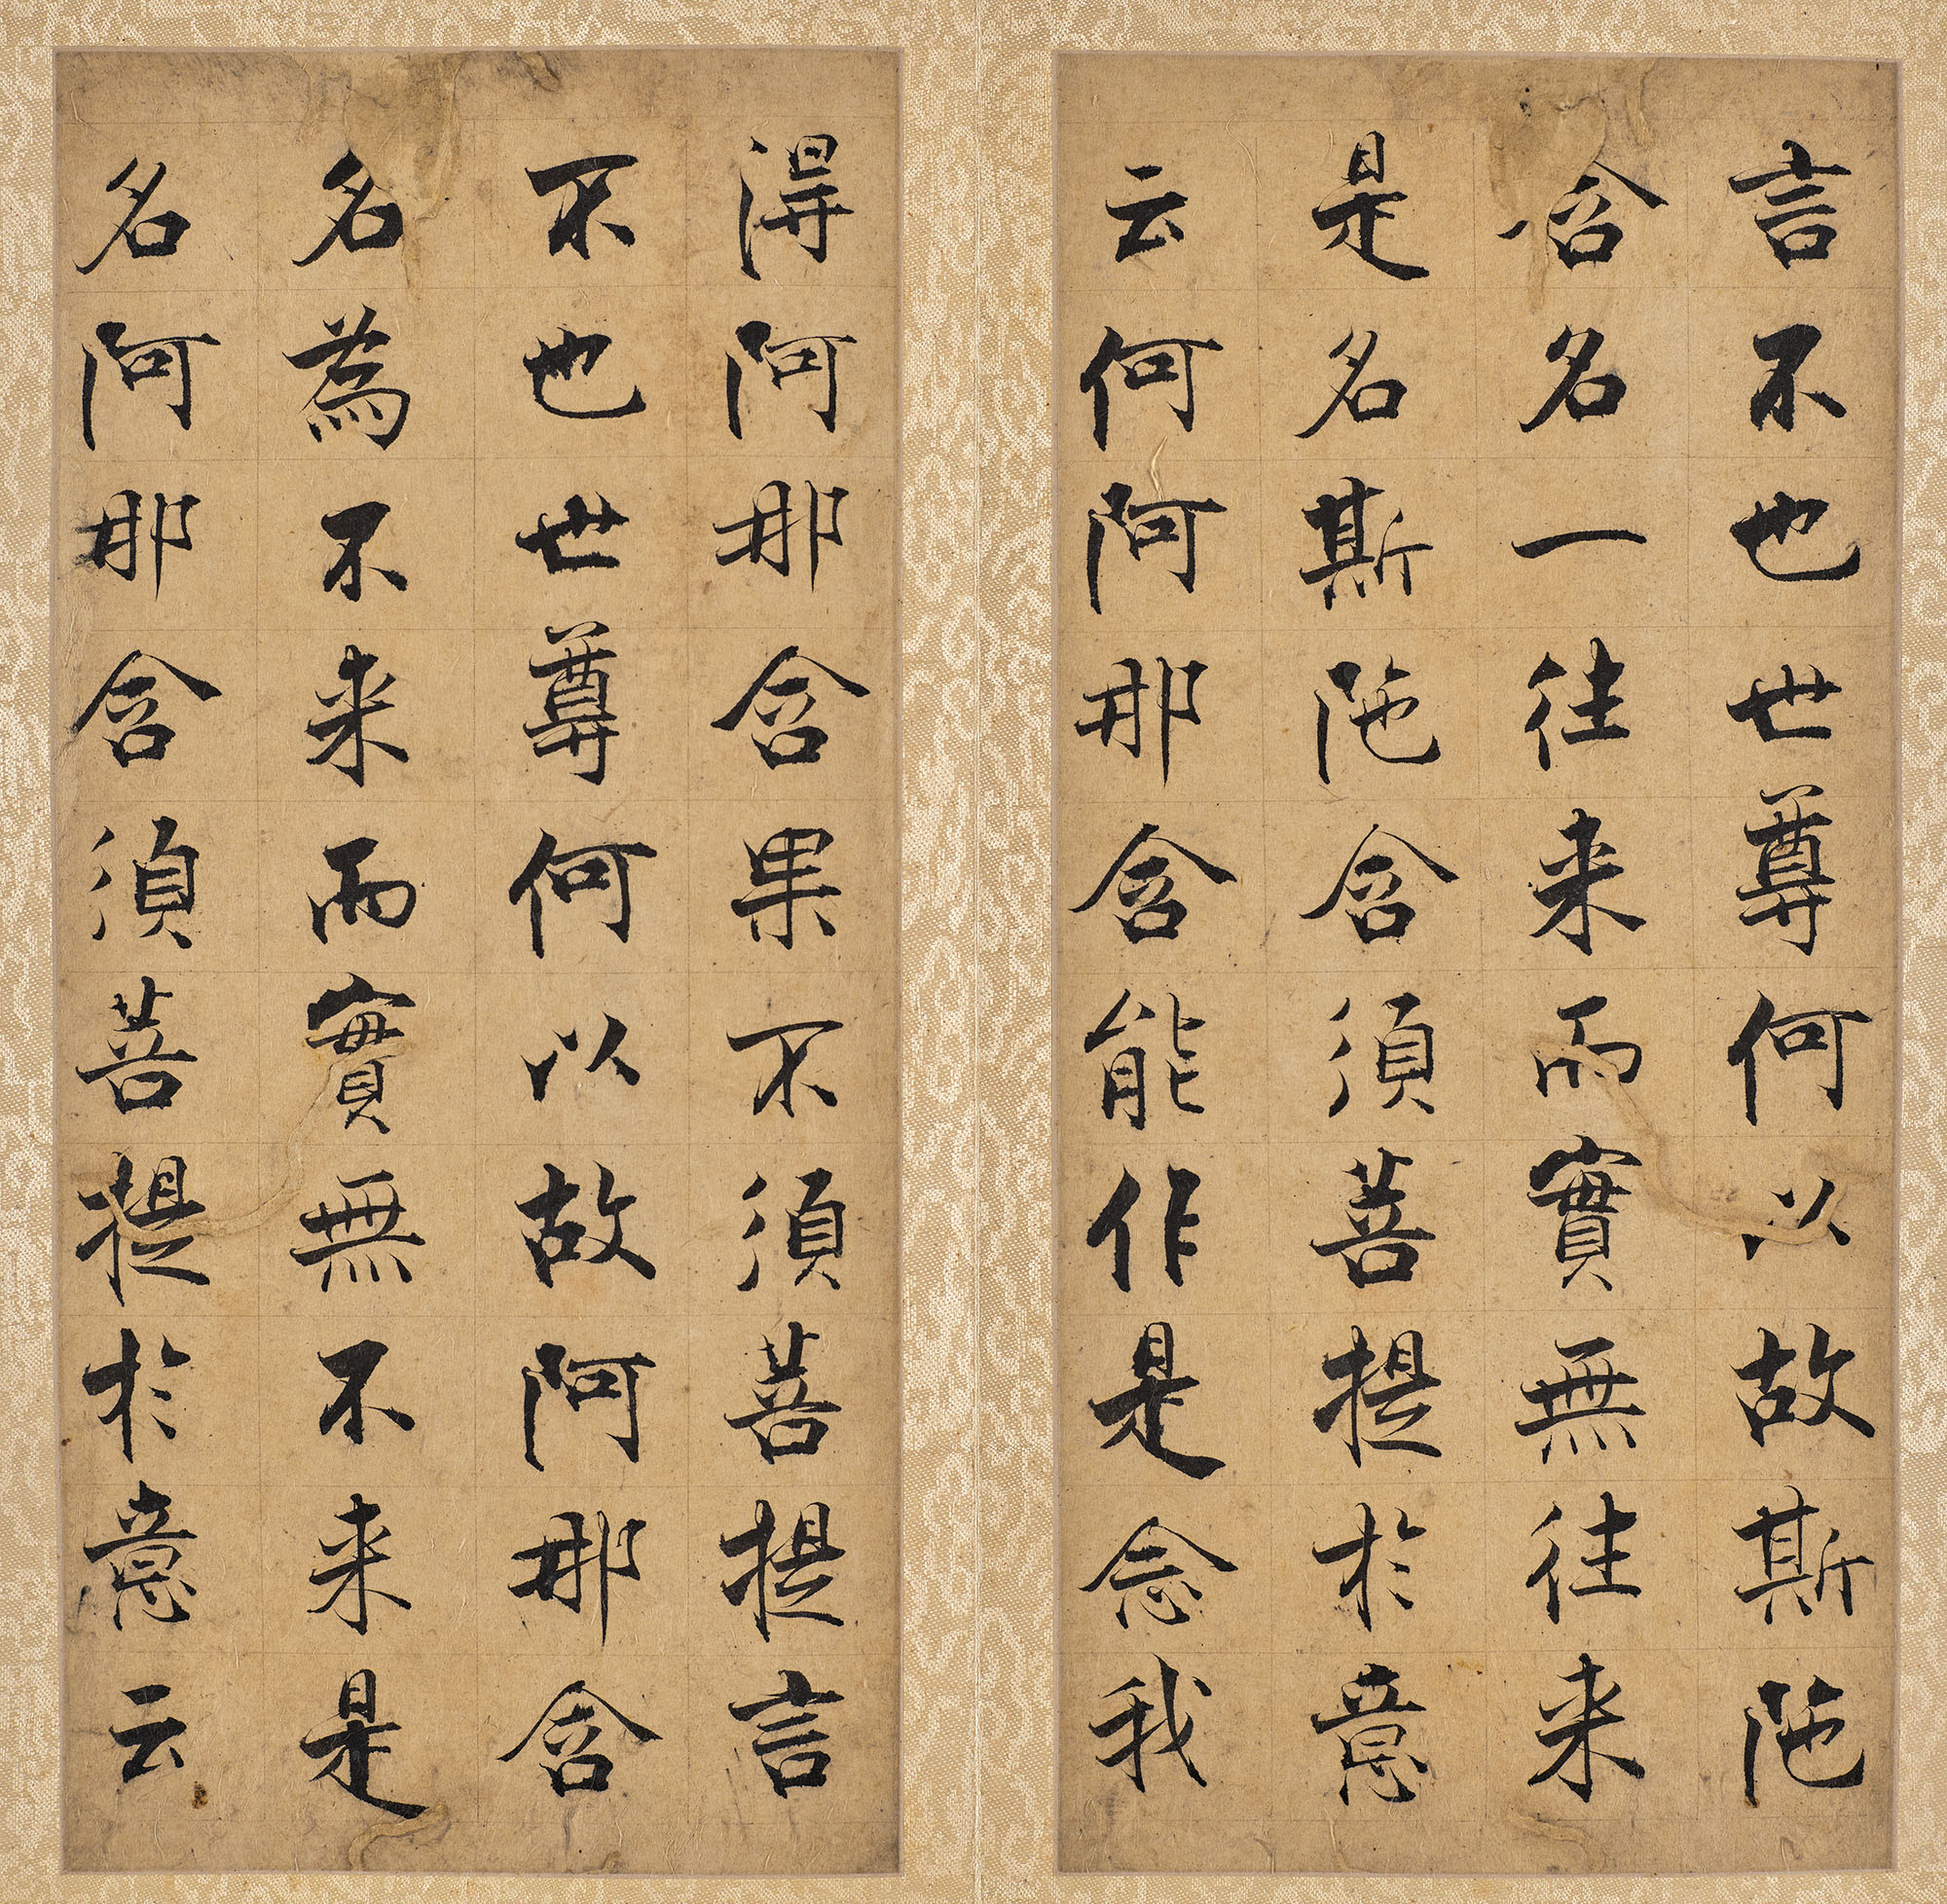 言不也世尊何以故斯陁
含名一往来而實無往来
是名斯陁含須菩提於意
云何阿那含能作是念我
淂阿那含果不須菩提言
不也世尊何以故阿那含
名為不来而實無不来是
名阿那含須菩提於意云